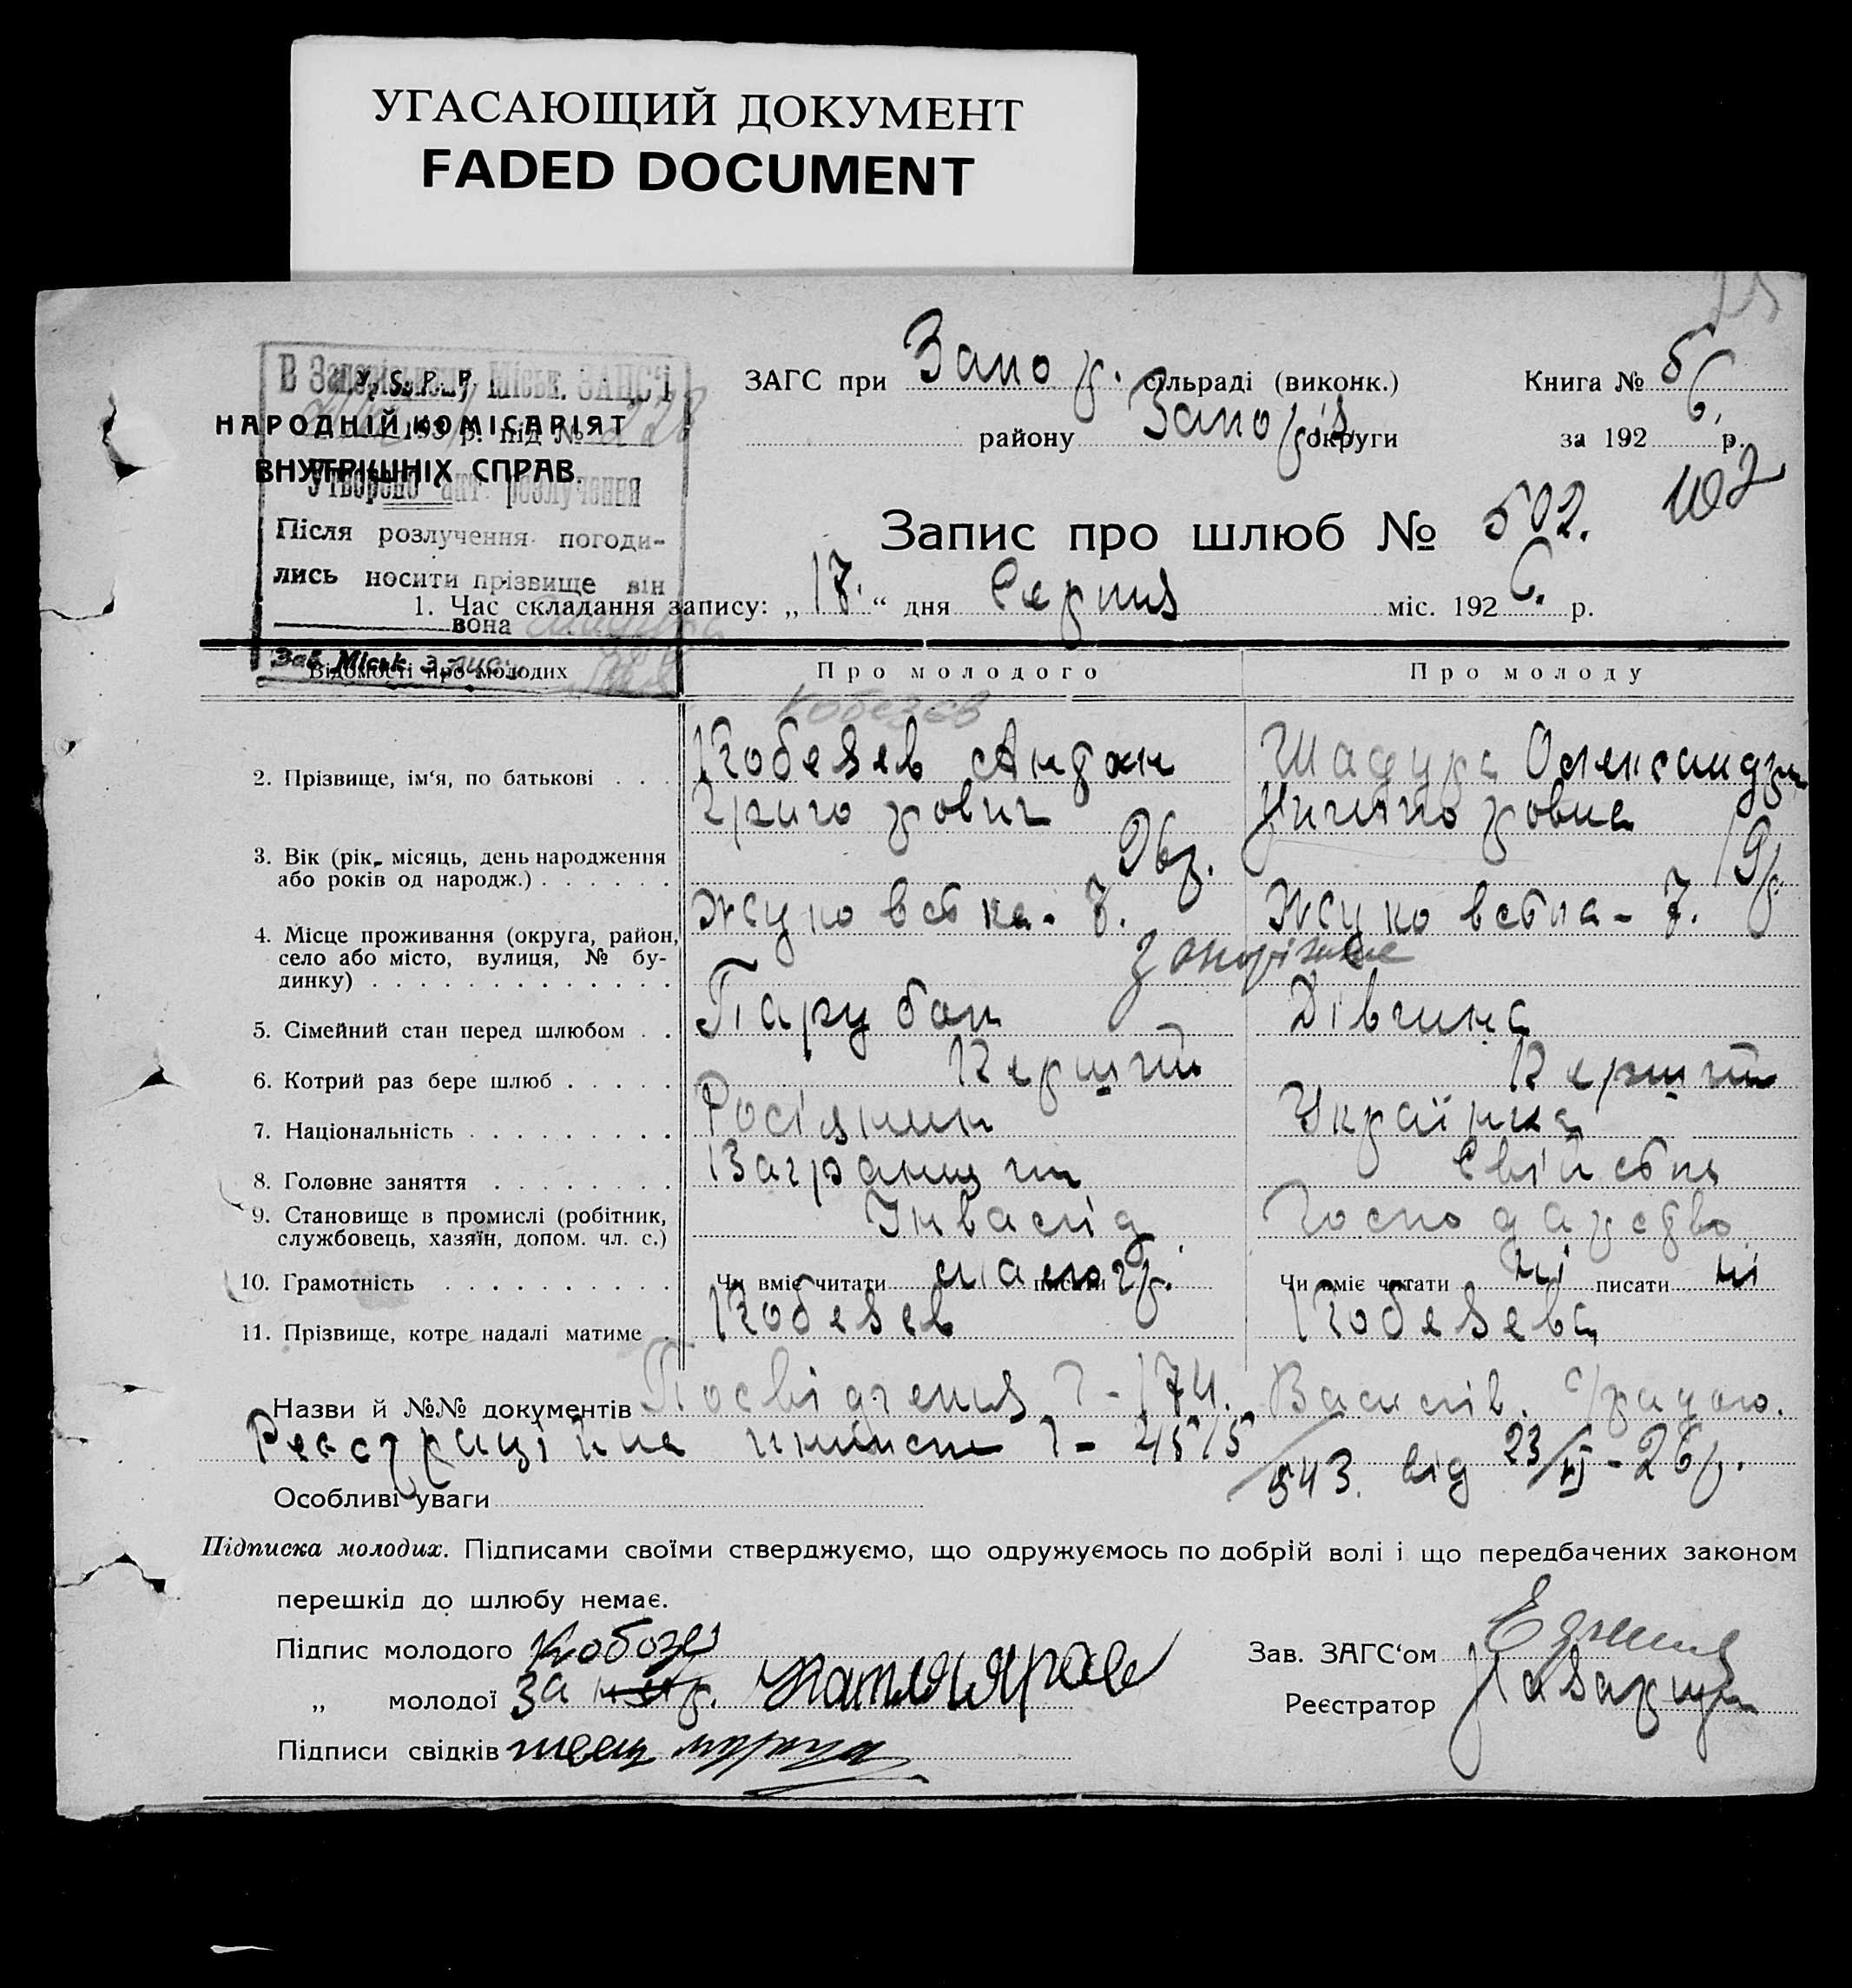 УГАСАЮЩИЙ ДОКУМЕНТ
FADED DOCUMENT
У. S. Р. Р.
НАРОДНІЙ КОМІСАРІЯТ
ВНУТРІШНІХ СПРАВ.
В Міськ. ЗАГС'і
193 р. під № 228
Утворено акт розлучення
Після розлучення погоди-
лись носити прізвище він
вона
Зав. Міськ.
ЗАГС при Запоріз. сільраді (виконк.)
Книга № 5
району Запоріз округи
за 1926 р.
Запис про шлюб № 502. 102
1. Час складання запису: „17.“ дня Серпня міс. 1926. р.
Відомості про молодих Про молодого Про молоду
Кобезєв
2. Прізвище, ім'я, по батькові Кобезев Антон Шадура Олександра
Григорович
3. Вік (рік, місяць, день народження 26р. 19р.
або років од народж.)
4. Місце проживання (округа, район, Жуковська-7. Жуковська-7.
село або місто, вулиця, № бу- Запоріжже
динку)
5. Сімейний стан перед шлюбом Парубок Дівчина
6. Котрий раз бере шлюб Перший Перший
7. Національність Росіянин Українка
8. Головне заняття Свійське
9. Становище в промислі (робітник, Інвалід Господарство
службовець, хазяїн, допом. чл. с.)
10. Грамотність Чи вміє читати малогр. писати Чи вміє читати ні писати ні
11. Прізвище, котре надалі матиме Кобезев Кобезева
Назви й №№ документів Посвідчення Ч-174. Василів. с/радою.
Реєстраційна Ч- 4515/543. від 23/II-26р.
Особливі уваги
Підписка молодих. Підписами своїми стверджуємо, що одружуємось по добрій волі і що передбачених законом
перешкід до шлюбу немає.
Підпис молодого Кобозев
Зав. ЗАГС'ом
„ молодої за
Реєстратор
Підписи свідків